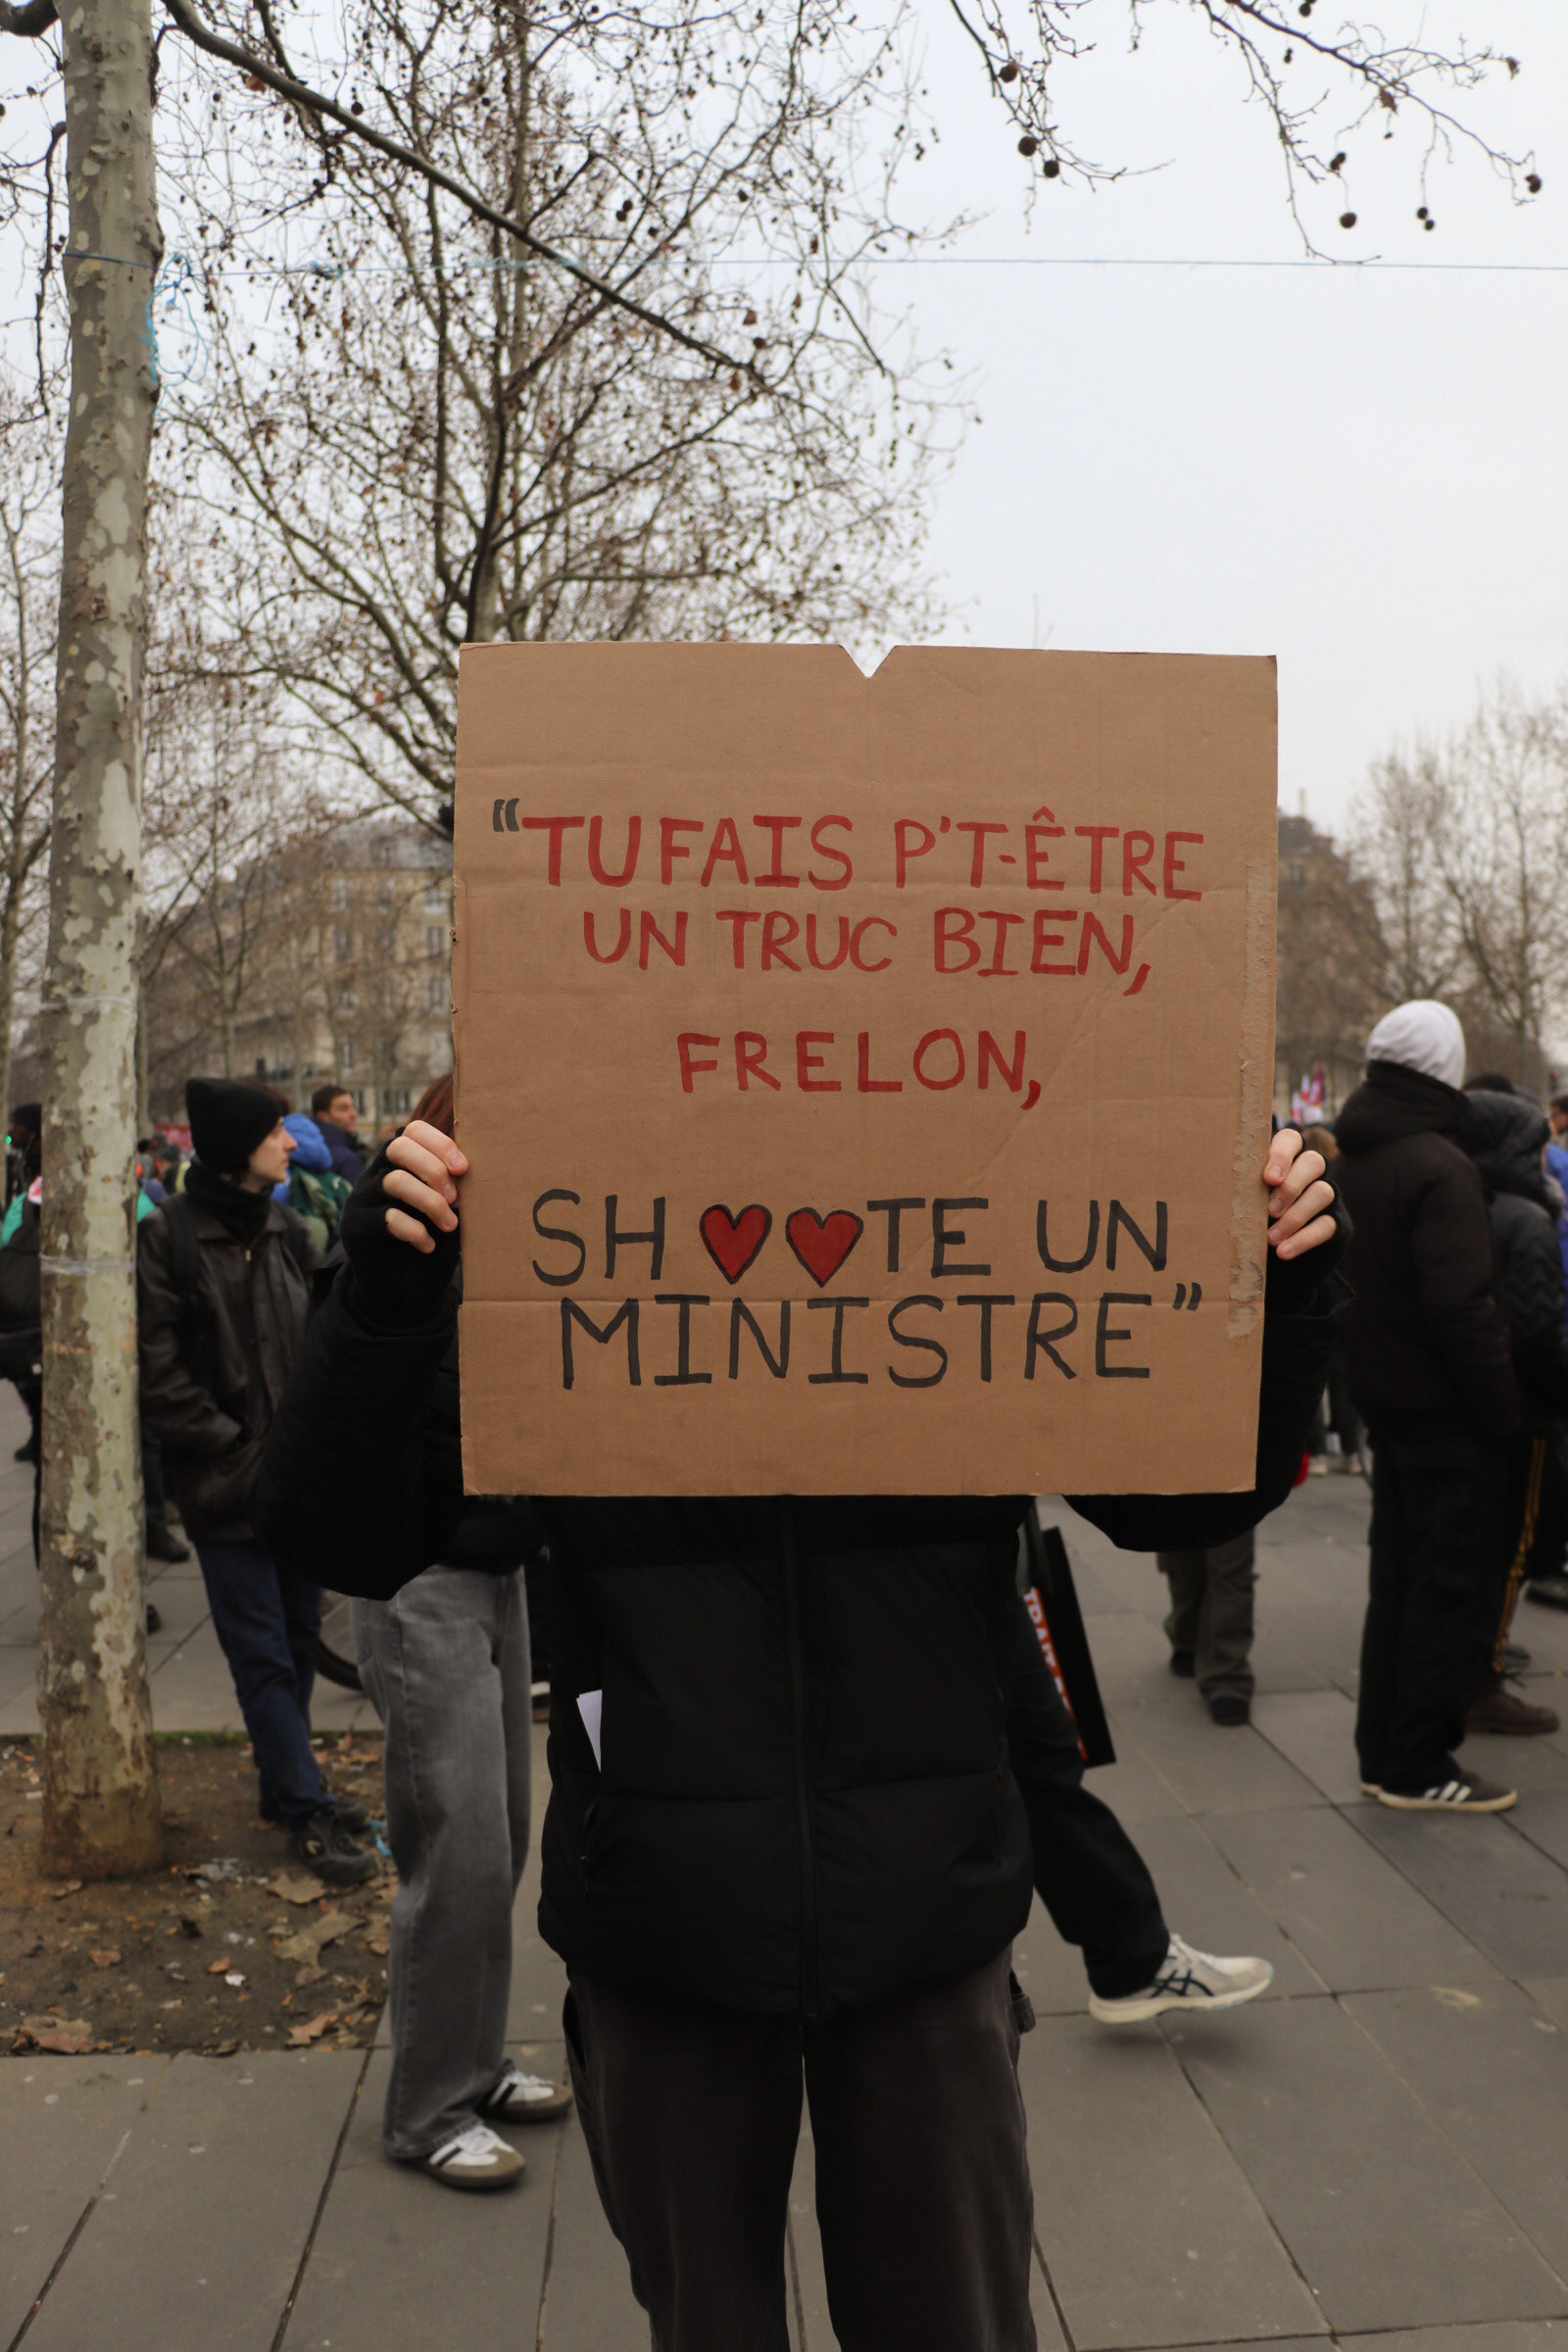 "TU FAIS P'T-ÊTRE
UN TRUC BIEN,
FRELON,
SH♥♥TE UN
MINISTRE"